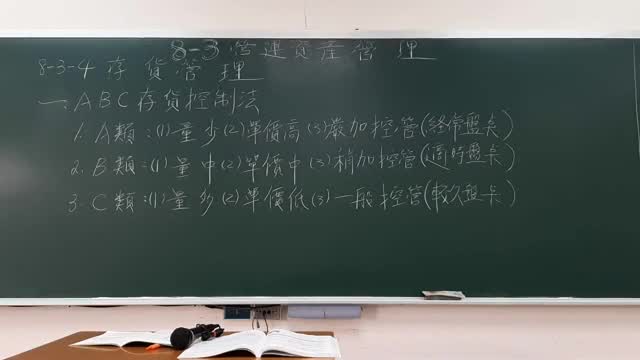 8-3營運資產管理
8-3-4存貨管理
一、ABC存貨控制法
1. A類:(1)量少(2)單價高(3)嚴加控管(經常盤點)
2. B類:(1)量中(2)單價中(3)稍加控管(適時盤點)
3. C類:(1)量多(2)單價低(3)一般控管(較久盤點)